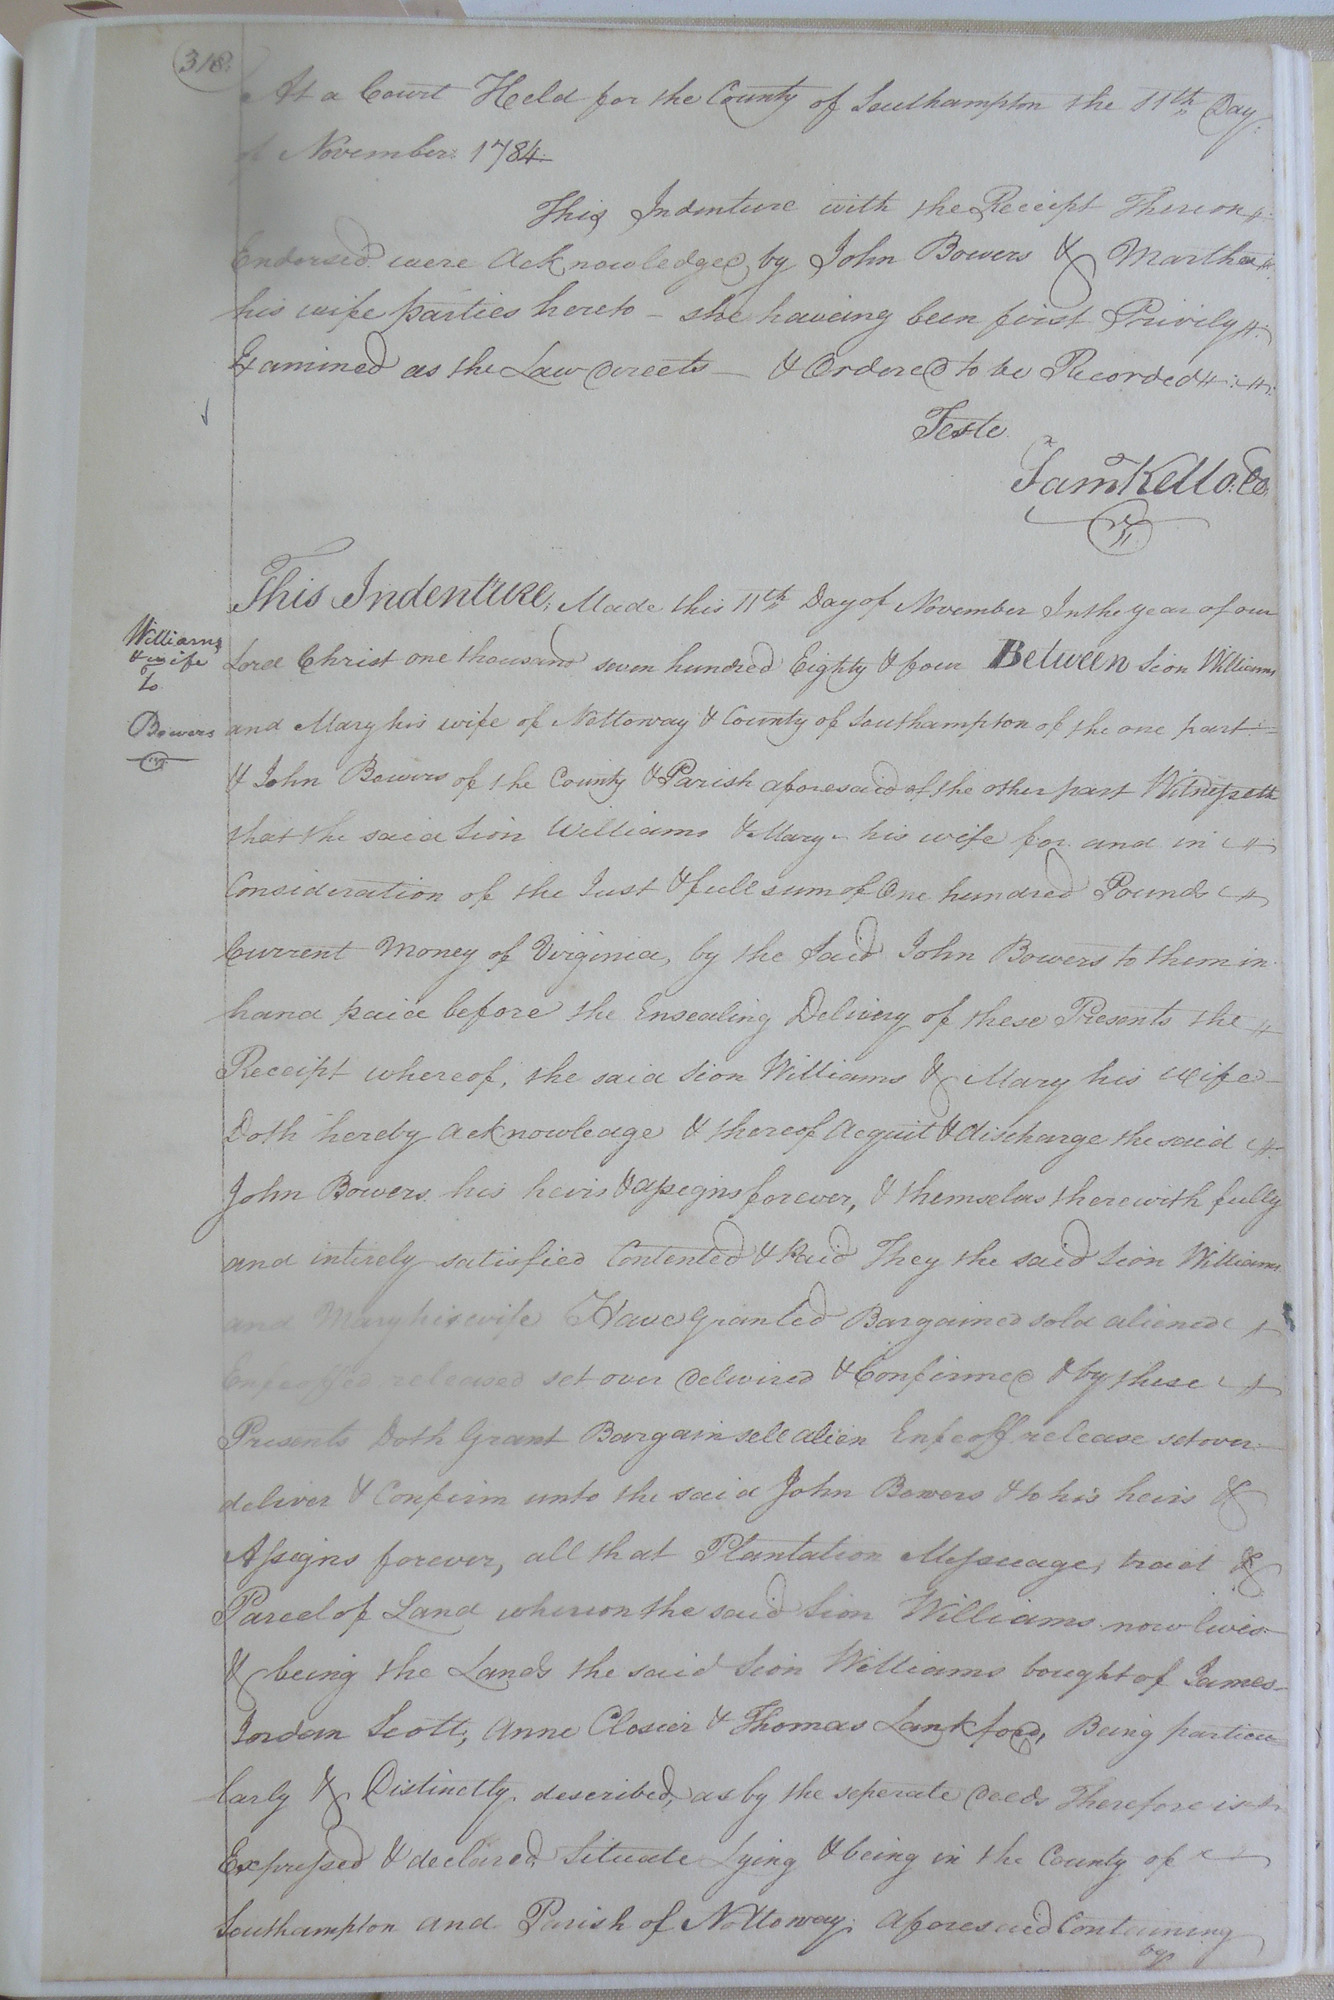 318
At a Court Held for the County of Southampton the 11th Day
of November 1784
This Indenture with the Receipt Thereon
Endorsed were Acknowledged by John Bowers & Martha
his wife parties hereto - she haveing been first Privily
Examined as the Law directs - & Ordered to be Recorded
Teste
Sam Kello. Co.
This Indenture, Made this 11th Day of November In the year of our
Williams
& wife
to
Bowers
Lord Christ one thousand seven hundred Eighty & four Between Sion Williams
and Mary his wife of Nottoway & County of Southampton of the one part
& John Bowers of the County & Parish aforesaid of the other part Witnesseth
that the said Sion Williams & Mary his wife for and in
Consideration of the Just & full sum of One hundred Pounds
Current Money of Virginia, by the Said John Bowers to them in
hand paid before the Ensealing Delivery of these Presents the
Receipt whereof, the said Sion Williams & Mary his wife
Doth hereby acknowledge & thereof Acquit & discharge the said
John Bowers his heirs & assigns forever, & themselves therewith fully
and intirely satisfied Contented & Paid They the said Sion Williams
and Mary his wife Have Granted Bargained sold aliened
Enfeoffed released set over delivired & Confirmed & by these
Presents Doth Grant Bargain sell alien Enfeoff release set over
deliver & Confirm unto the said John Bowers & to his heirs &
Assigns forever, all that Plantation Messuage, tract &
Parcel of Land whereon the said Sion Williams now lives
& being the Lands the said Sion Williams bought of James
Jordan Scott, Anne Closier & Thomas Lankford, Being particu
larly & Distinctly described, as by the seperate deeds Therefore is
Expressed & declared Situate Lying & being in the County of
Southampton and Parish of Nottoway aforesaid Containing
by